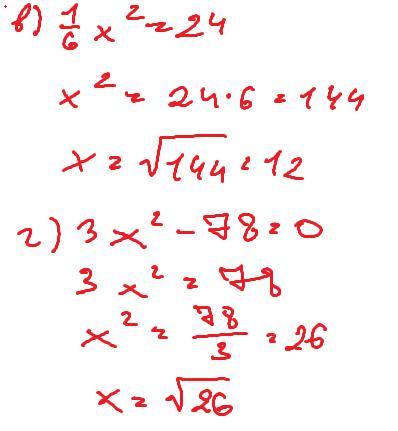 в) 1/6 x² = 24
x² = 24·6 = 144
x = √144 = 12
г) 3x² - 78 = 0
3x² = 78
x² = 78/3 = 26
x = √26